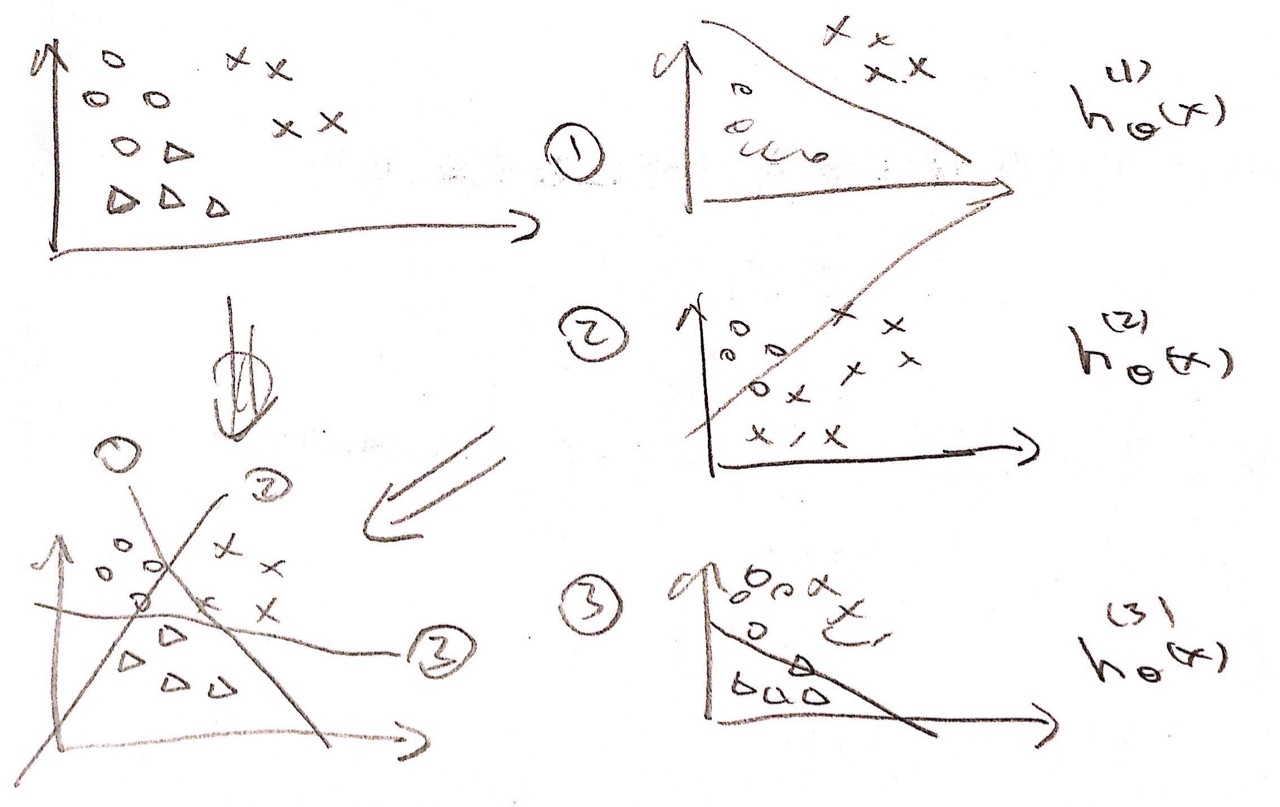 ① h_θ^(1)(x)
② h_θ^(2)(x)
③ h_θ^(3)(x)
①
②
③